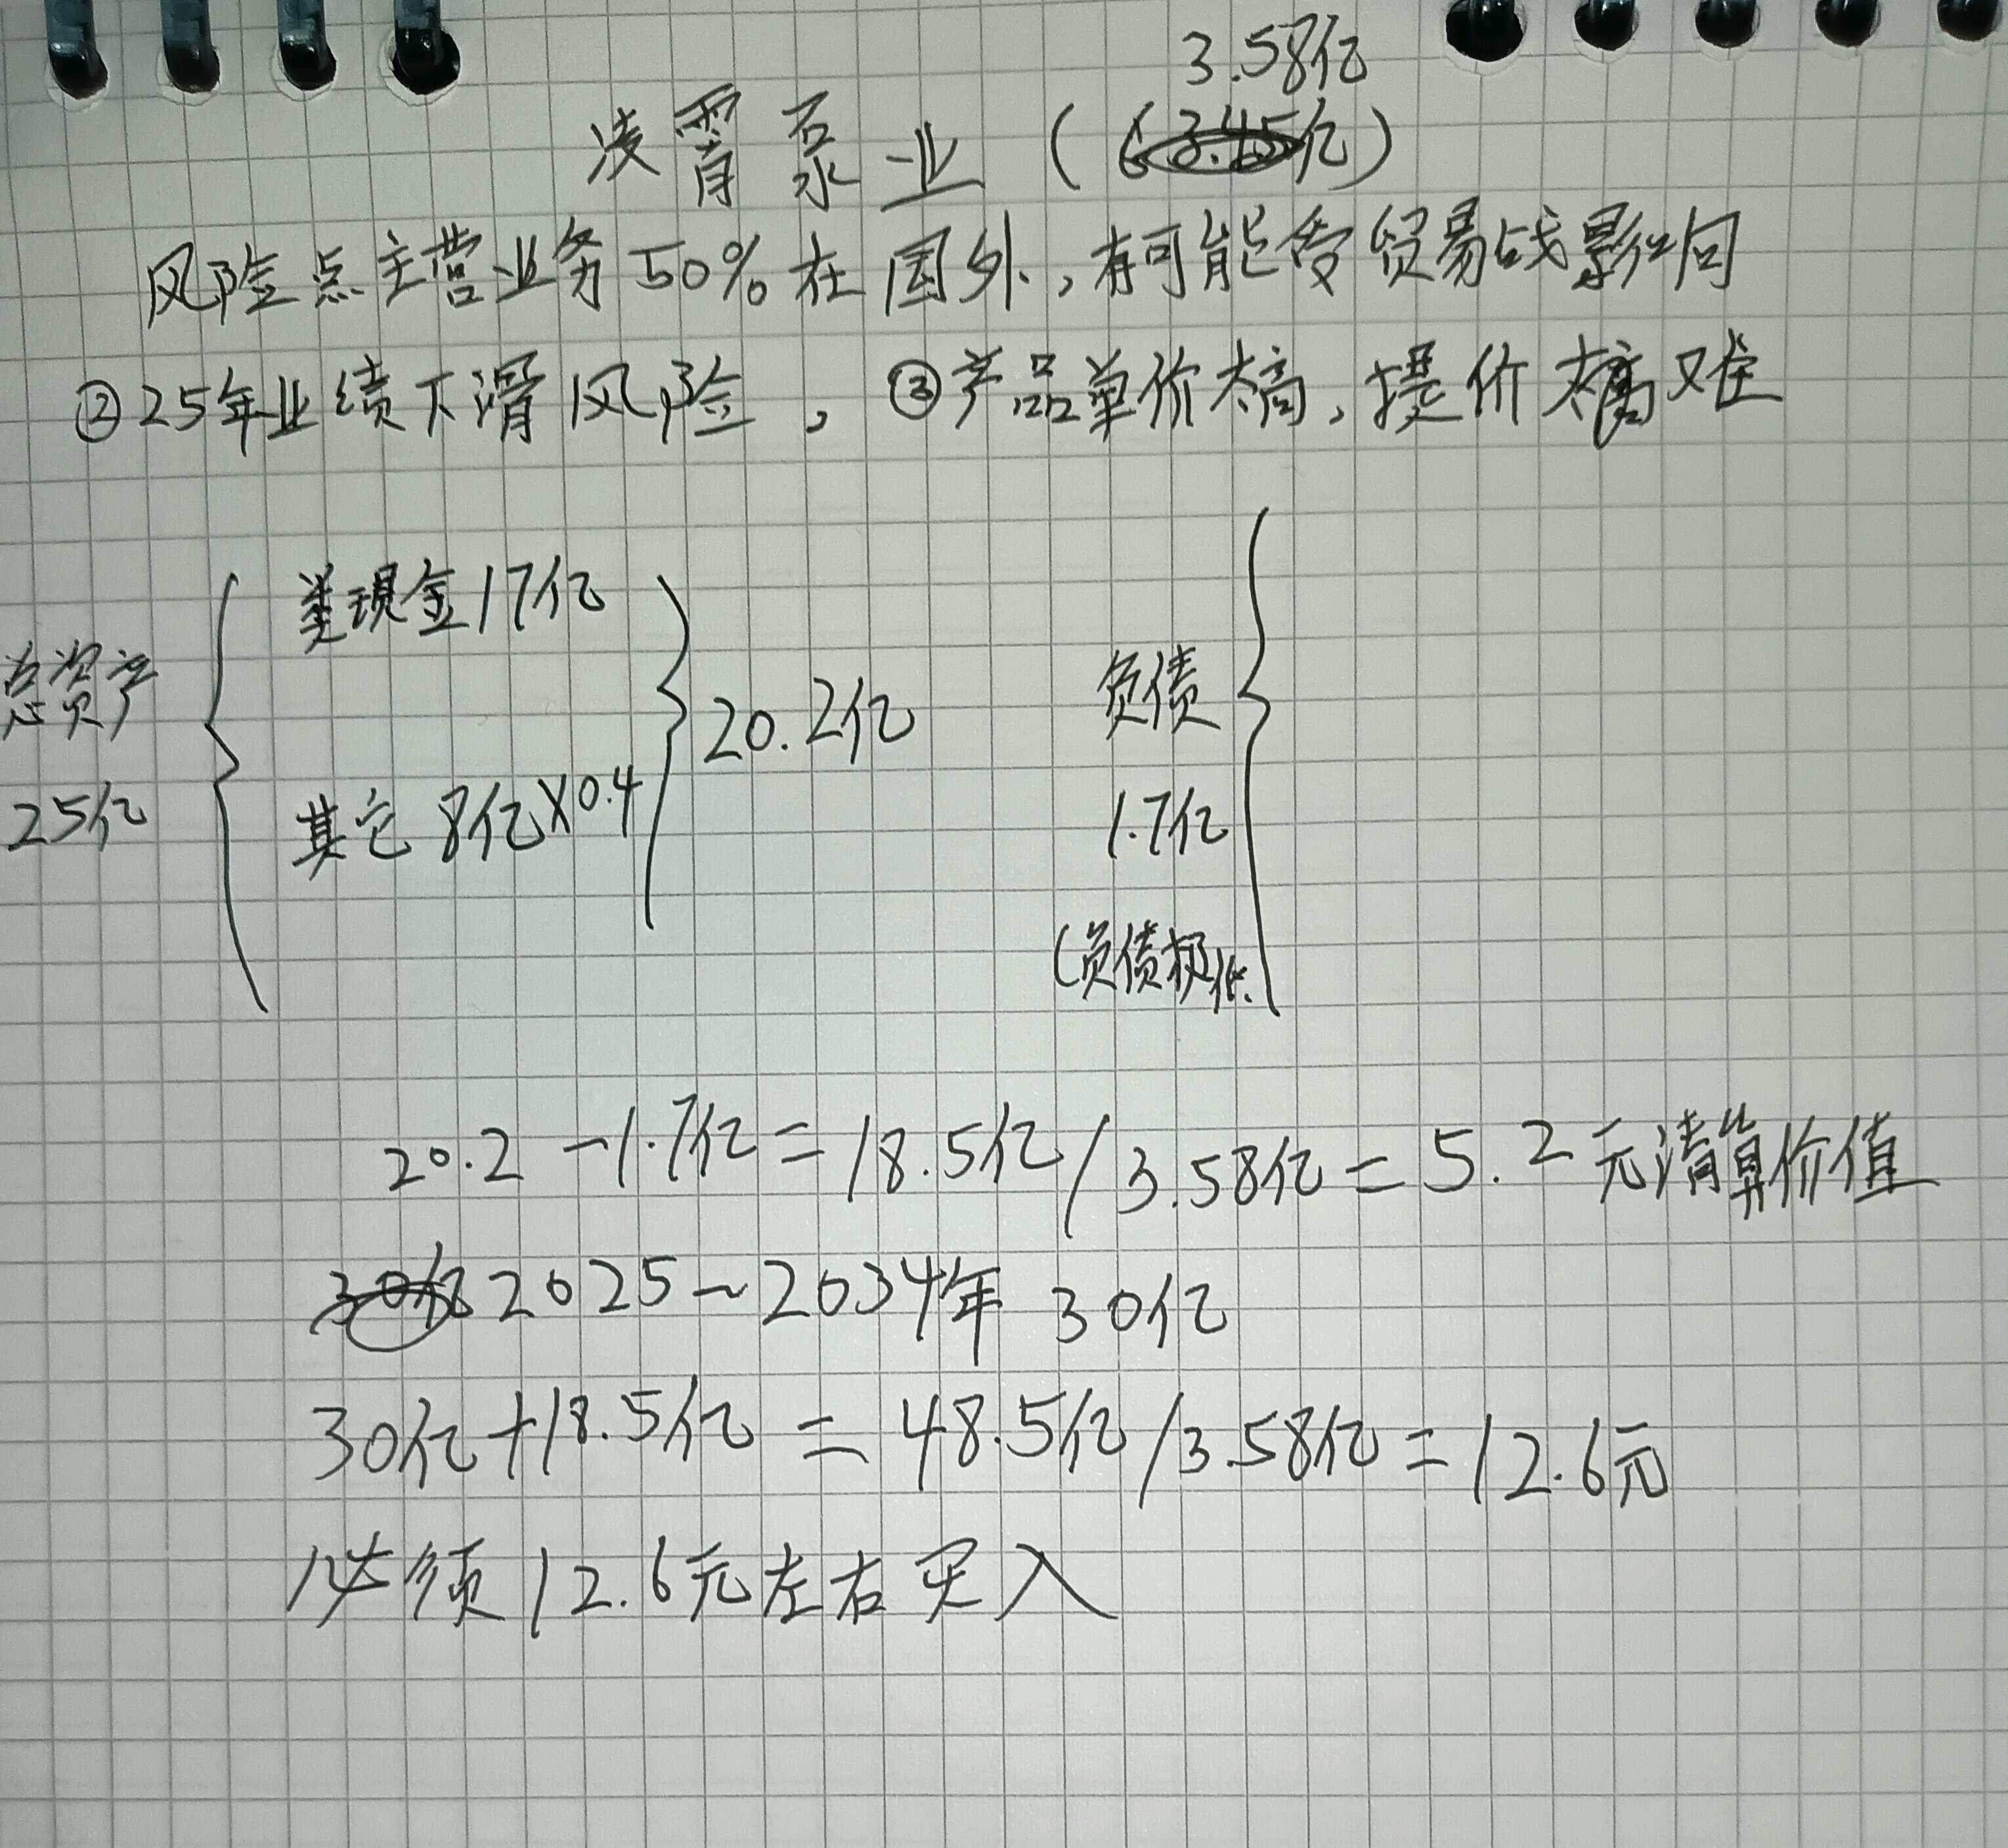 3.58亿
凌霄泵业（3.45亿）
风险点主营业务50%在国外，有可能受贸易战影响
②25年业绩下滑风险，③产品单价太高，提价太难
类现金17亿
总资产 20.2亿 负债
25亿 其它8亿×0.4 1.7亿
（负债极低
20.2-1.7亿=18.5亿/3.58亿=5.2元清算价值
30亿2025~2034年 30亿
30亿+18.5亿=48.5亿/3.58亿=12.6元
必须12.6元左右买入